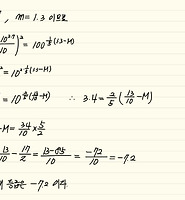 , m=1.3 이므로
(10^2.7/10)^2 = 100^{1/5(1.3-M)}
= 10^{2·1/5(1.3-M)}
= 10^{2/5(13/10-M)} ∴ 3.4 = 2/5(13/10-M)
-M = 34/10 × 5/2
13/10 - 17/2 = 13-85/10 = -72/10 = -7.2
등급은 -7.2 이다